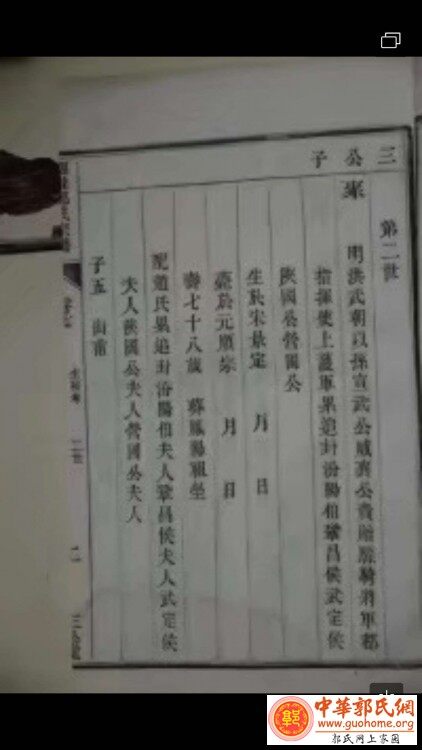 三公子
第二世
明洪武朝以孫宣武公威襄公貴贈驃騎將軍都
指揮使上護軍累追封汾陽相鞏昌侯武定侯
陝國公營國公
生於宋景定 月 日
薨於元順宗 月 日
壽七十八歲 葬鳳陽祖塋
配趙氏累追封汾陽相夫人鞏昌侯夫人武定侯
夫人陝國公夫人營國公夫人
子五 山甫
中華郭氏網
www.guohome.org
郭氏网上家园